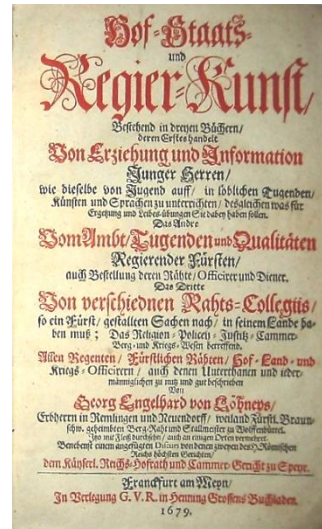 Hof-Staats-
und
Regier-Kunst/
Bestehend in dreyen Büchern/
deren Erstes handelt
Von Erziehung und Information
Junger Herren/
wie dieselbe von Jugend auff/ in löblichen Tugenden/
Künsten und Sprachen zu unterrichten/ desgleichen was für
Ergetzung und Leibes-übungen Sie dabey haben sollen.
Das Andre
Vom Ambt/Tugenden und Qualitäten
Regierender Fürsten/
auch Bestellung deren Rähte/ Officirer und Diener.
Das Dritte
Von verschiednen Rahts-Collegiis/
so ein Fürst/ gestalten Sachen nach/ in seinem Lande ha-
ben muß; Das Religion- Policey- Justitz- Cammer-
Berg- und Kriegs-Wesen betreffend.
Allen Regenten/ Fürstlichen Rähten/ Hof- Land- und
Kriegs-Officirern/ auch denen Unterthanen und ieder-
männiglichen zu nutz und gut beschrieben
Von
Georg Engelhard von Löhneys/
Erbherrn in Remlingen und Neuendorff/ weiland Fürstl. Braun-
schw. geheimbten Berg-Raht und Stallmeister zu Wolffenbüttel.
Itzo mit Fleiß durchsehn/ auch an einigen Orten vermehret.
Benebenst einem angefügten Discurs von denen zweyen des H. Römischen
Reichs höchsten Gerichten/
dem Käyserl. Reichs-Hofrath und Cammer-Gericht zu Speyr.
Franckfurt am Meyn/
In Verlegung G. V. R. in Henning Grossens Buchladen.
1679.